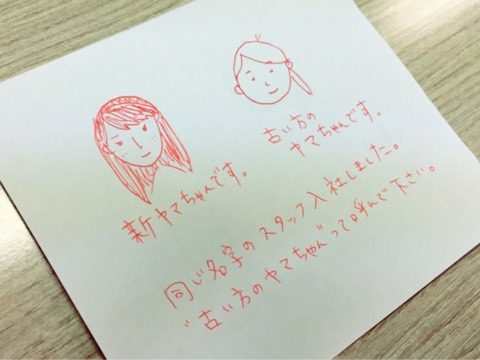 新ヤマちゃんです。
古い方の
ヤマちゃんです。
同じ名字のスタッフ入社しました。
"古い方のヤマちゃん"って呼んで下さい。